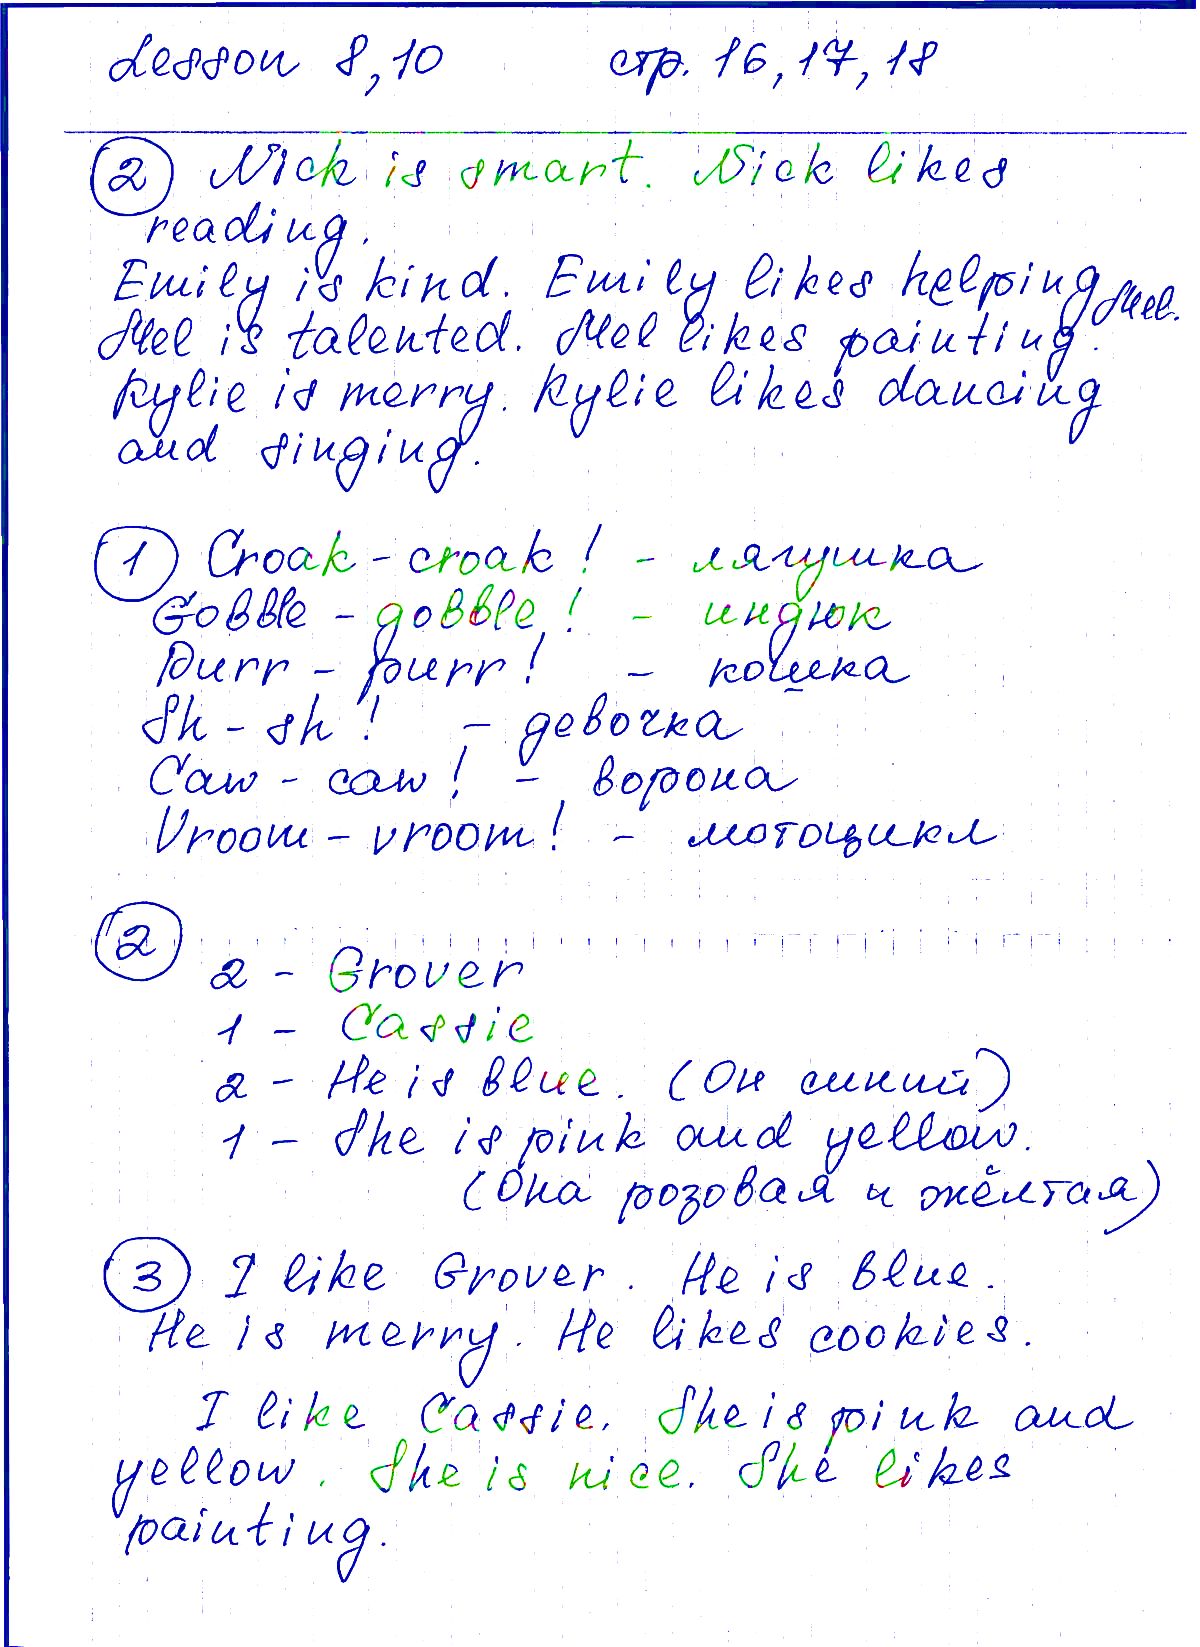 Lesson 8, 10 стр. 16, 17, 18
② Nick is smart. Nick likes
reading.
Emily is kind. Emily likes helping Mel.
Mel is talented. Mel likes painting.
Kylie is merry. Kylie likes dancing
and singing.
① Croak - croak! - лягушка
Gobble - gobble! - индюк
Purr - purr! - кошка
Sh - sh! - девочка
Caw - caw! - ворона
Vroom - vroom! - мотоцикл
②
2 - Grover
1 - Cassie
2 - He is blue. (Он синий)
1 - She is pink and yellow.
(Она розовая и жёлтая)
③ I like Grover. He is blue.
He is merry. He likes cookies.
I like Cassie. She is pink and
yellow. She is nice. She likes
painting.